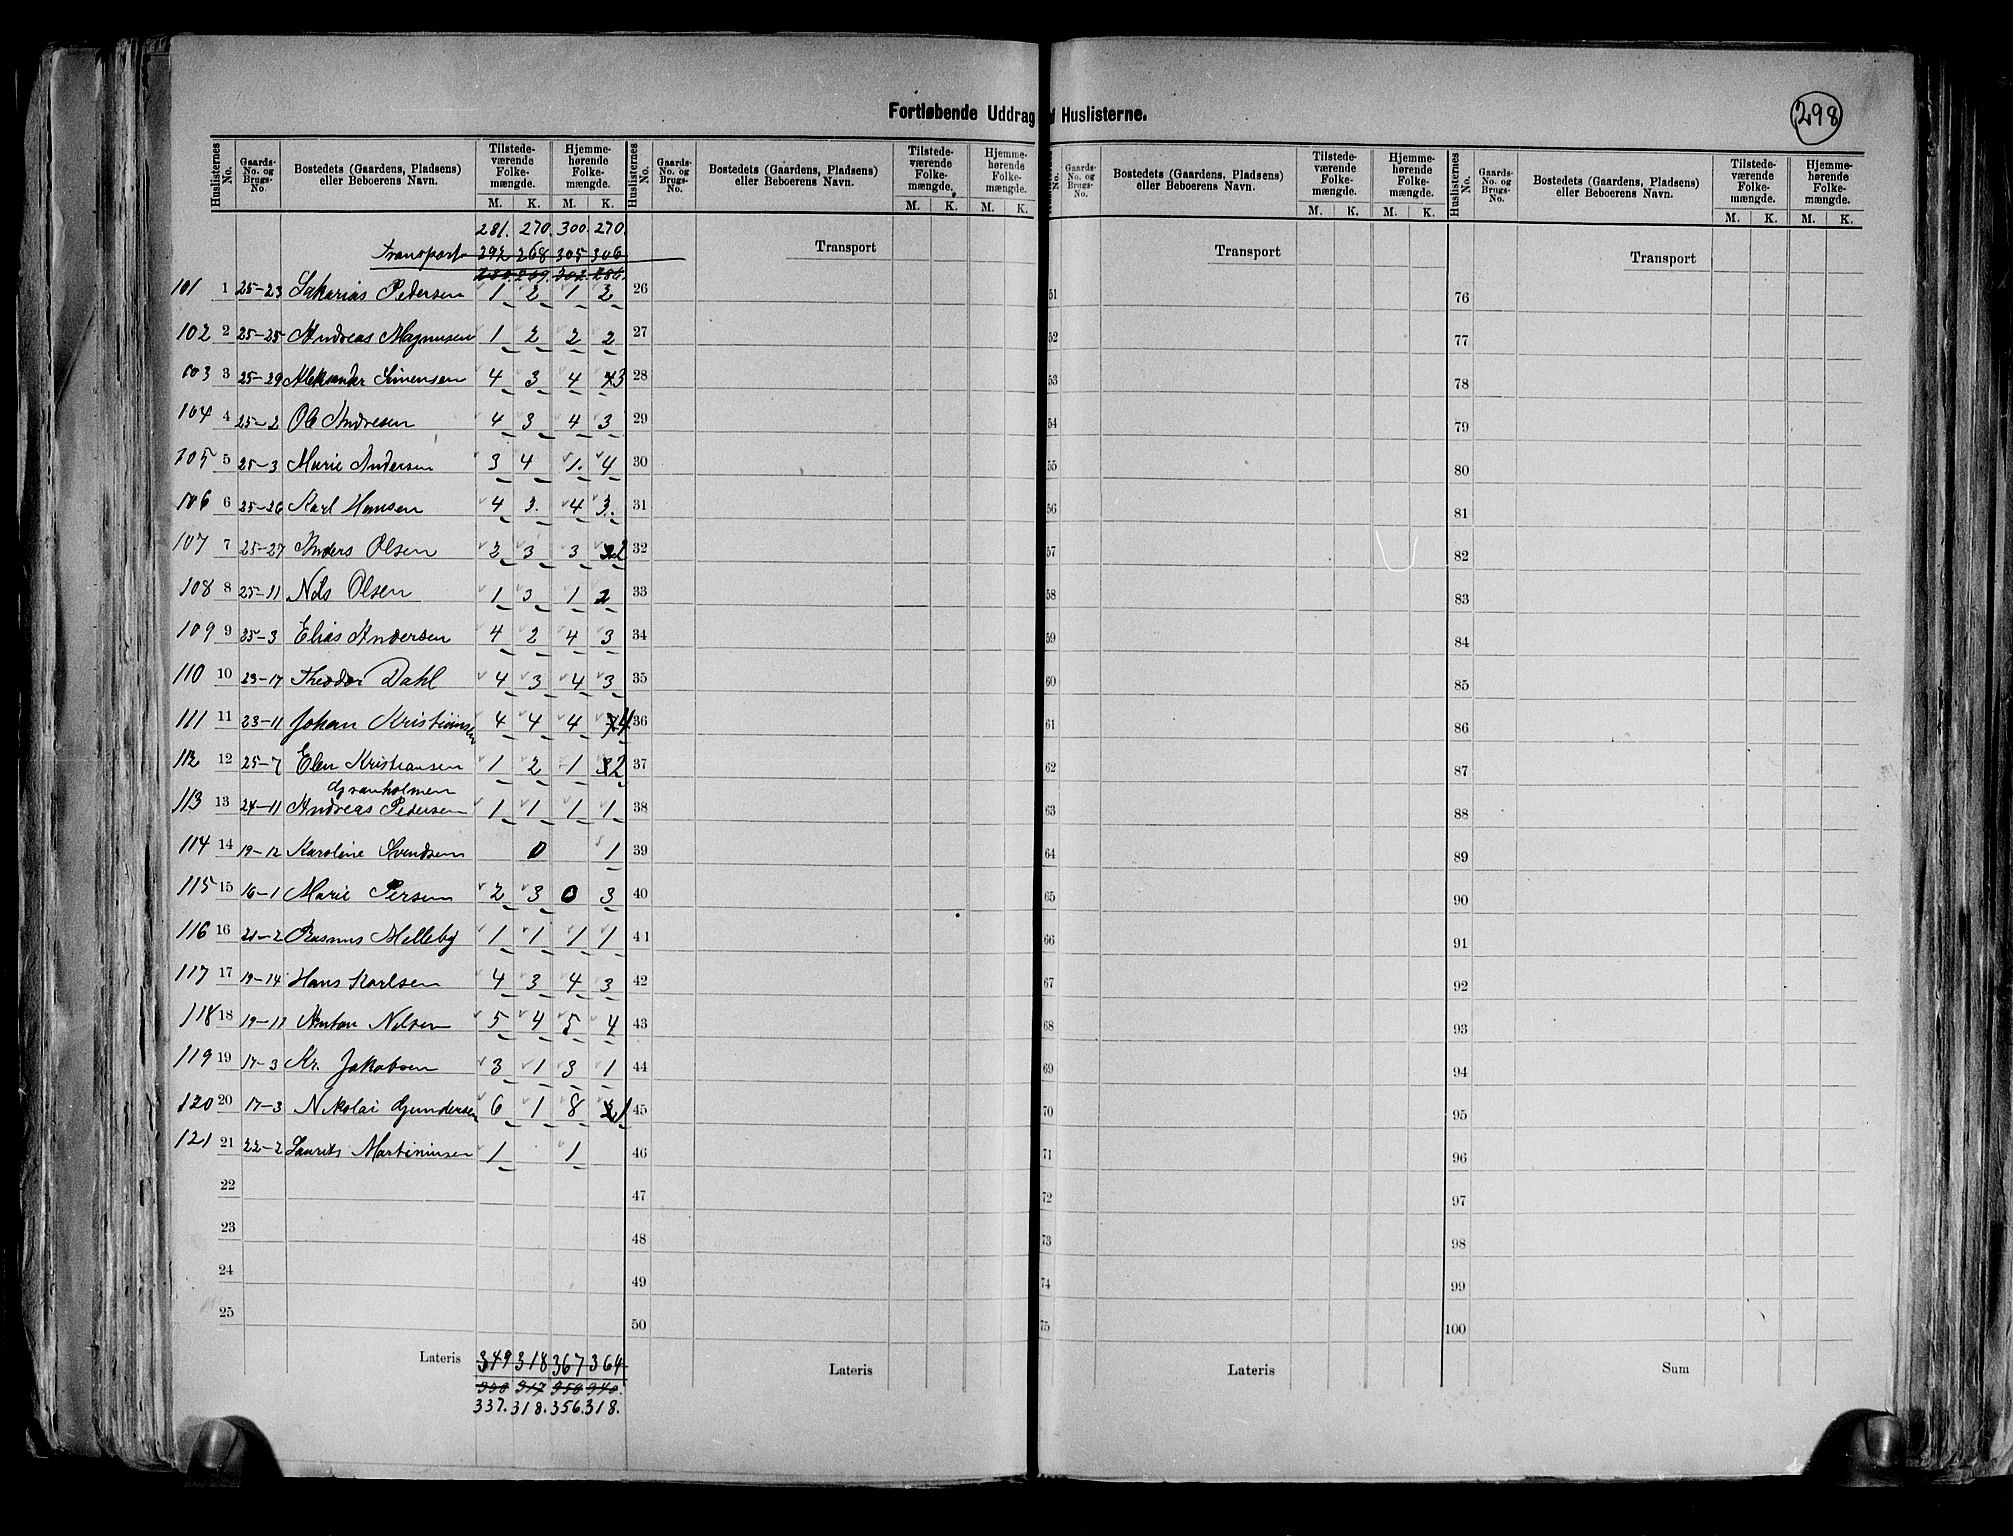 Fortløbende Uddrag Huslisterne.
298
Huslisternes No. Gaards-No. og Brugs-No. Bostedets (Gaardens, Pladsens) eller Beboerens Navn. Tilstede-værende Folke-mængde. Hjemme-hørende Folke-mængde. Huslisternes No. Gaards-No. og Brugs-No. Bostedets (Gaardens, Pladsens) eller Beboerens Navn. Tilstede-værende Folke-mængde. Hjemme-hørende Folke-mængde. No. Gaards-No. og Brugs-No. Bostedets (Gaardens, Pladsens) eller Beboerens Navn. Tilstede-værende Folke-mængde. Hjemme-hørende Folke-mængde. Huslisternes No. Gaards-No. og Brugs-No. Bostedets (Gaardens, Pladsens) eller Beboerens Navn. Tilstede-værende Folke-mængde. Hjemme-hørende Folke-mængde.
M. K. M. K. M. K. M. K. M. K. M. K. M. K. M. K.
281. 270. 300. 270.
Transport 292 268 305 306 Transport Transport Transport
302. 286.
101 1 25-23 Sakarias Pedersen 1 2 1 2 26 51 76
102 2 25-25 Andreas Magnusen 1 2 2 2 27 52 77
103 3 25-29 Aleksander Simensen 4 3 4 3 28 53 78
104 4 25-2 Ole Andresen 4 3 4 3 29 54 79
105 5 25-3 Marie Andersen 3 4 1. 4 30 55 80
106 6 25-26 Karl Hansen 4 3. 4 3. 31 56 81
107 7 25-27 Anders Olsen 2 3 3 2 32 57 82
108 8 25-11 Nils Olsen 1 3 1 2 33 58 83
109 9 25-3 Elias Andersen 4 2 4 3 34 59 84
110 10 23-17 Theodor Dahl 4 3 4 3 35 60 85
111 11 23-11 Johan Kristiansen 4 4 4 4 36 61 86
112 12 25-7 Elen Kristiansen 1 2 1 2 37 62 87
Granholmen
113 13 24-11 Andreas Pedersen 1 1 1 1 38 63 88
114 14 19-12 Karoline Svendsen 0 1 39 64 89
115 15 16-1 Marie Persen 2 3 0 3 40 65 90
116 16 21-2 Rasmus Melleby 1 1 1 1 41 66 91
117 17 19-14 Hans Karlsen 4 3 4 3 42 67 92
118 18 19-11 Anton Nilsen 5 4 5 4 43 68 93
119 19 17-3 Kr. Jakobsen 3 1 3 1 44 69 94
120 20 17-3 Nikolai Gundersen 6 1 8 1 45 70 95
121 21 22-2 Laurits Martiniusen 1 1 46 71 96
22 47 72 97
23 48 73 98
24 49 74 99
25 50 75 100
Lateris 349 318 367 364 Lateris Lateris Sum
317 350 340.
337. 318. 356. 318.